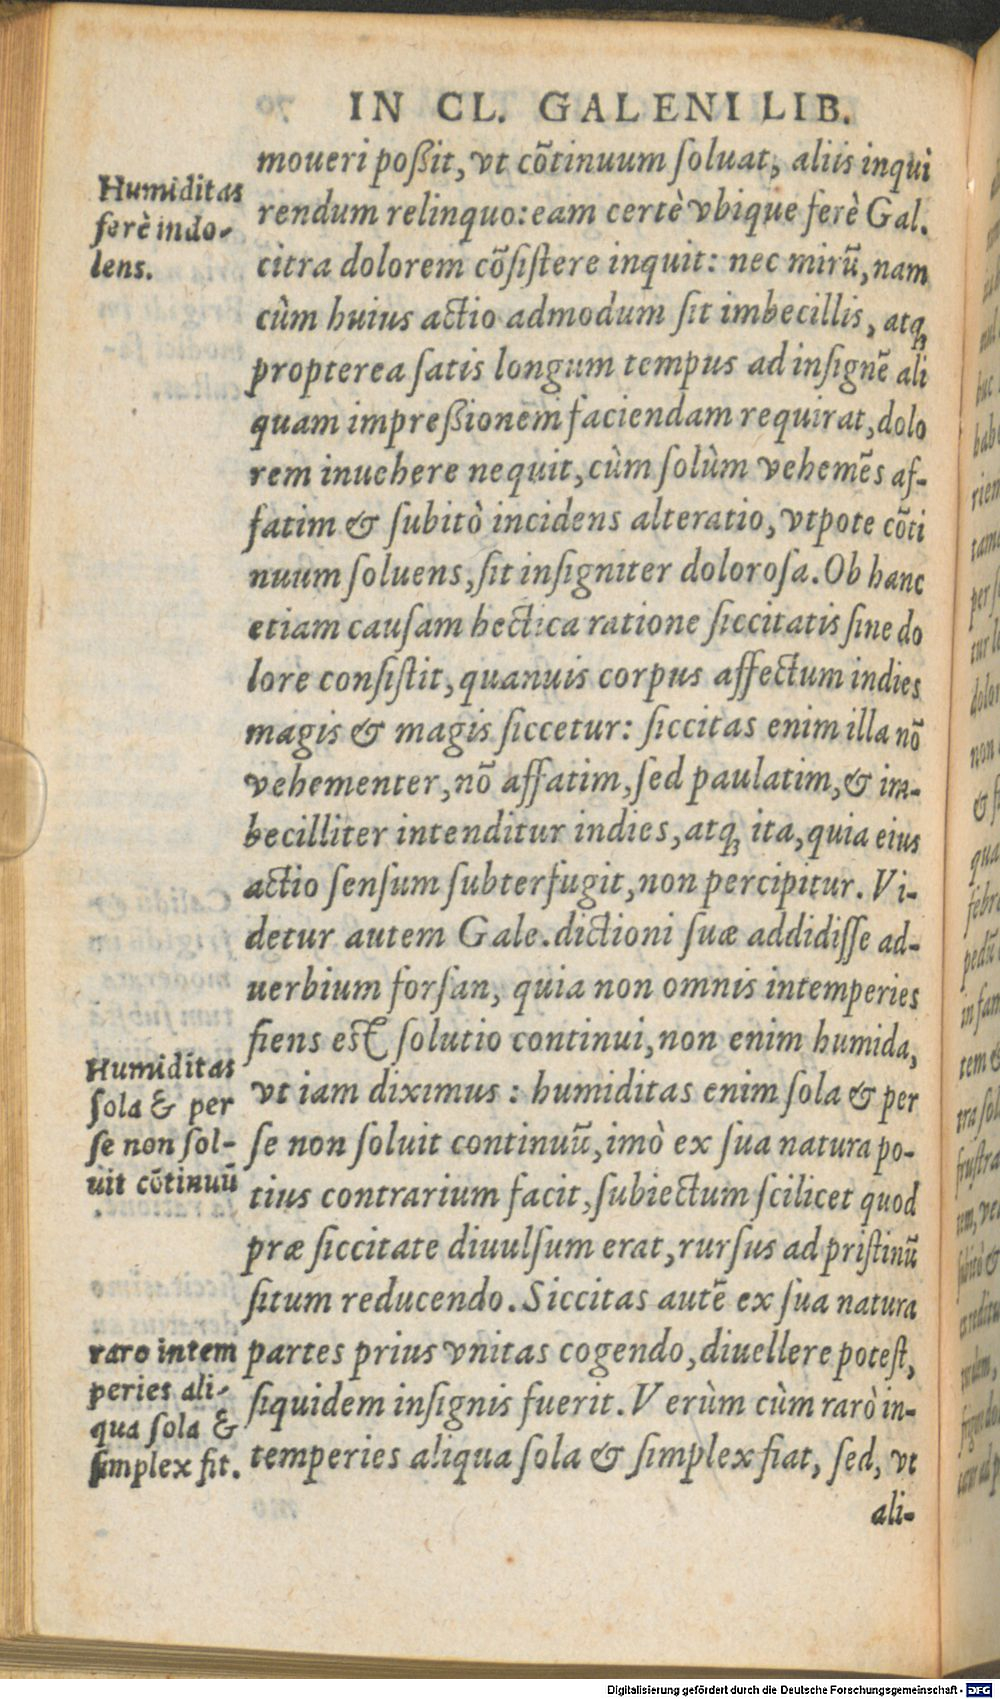 IN CL. GALENI LIB.
moueri poßit, vt cõtinuum ſoluat, aliis inqui
rendum relinquo: eam certè vbique ferè Gal.
citra dolorem cõſiſtere inquit: nec mirũ, nam
cùm huius actio admodum ſit imbecillis, atq;
propterea ſatis longum tempus ad inſignẽ ali
quam impreßionem faciendam requirat, dolo
rem inuehere nequit, cùm ſolùm vehemẽs af-
fatim & ſubitò incidens alteratio, vtpote cõti
nuum ſoluens, ſit inſigniter doloroſa. Ob hanc
etiam cauſam hectica ratione ſiccitatis ſine do
lore conſiſtit, quanuis corpus affectum indies
magis & magis ſiccetur: ſiccitas enim illa nõ
vehementer, nõ affatim, ſed paulatim, & im-
becilliter intenditur indies, atq; ita, quia eius
actio ſenſum ſubterfugit, non percipitur. Vi-
detur autem Gale. dictioni ſuæ addidiſſe ad-
uerbium forſan, quia non omnis intemperies
fiens eſt ſolutio continui, non enim humida,
vt iam diximus: humiditas enim ſola & per
ſe non ſoluit continuũ, imò ex ſua natura po-
tius contrarium facit, ſubiectum ſcilicet quod
præ ſiccitate diuulſum erat, rurſus ad priſtinũ
ſitum reducendo. Siccitas autẽ ex ſua natura
partes prius vnitas cogendo, diuellere poteſt,
ſiquidem inſignis fuerit. Verùm cùm rarò in-
temperies aliqua ſola & ſimplex fiat, ſed, vt
ali-
Humiditas
ferè indo-
lens.
Humiditas
ſola & per
ſe non ſol-
uit cõtinuũ
raro intem
peries ali-
qua ſola &
ſimplex fit.
Digitalisierung gefördert durch die Deutsche Forschungsgemeinschaft - DFG